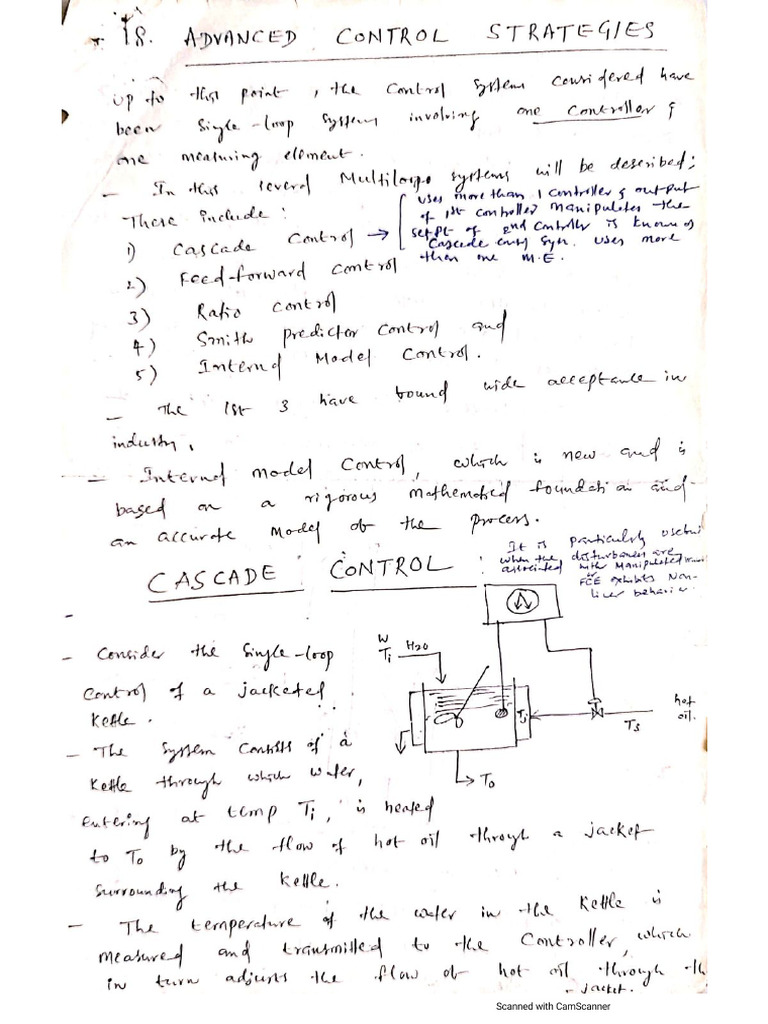 18. ADVANCED CONTROL STRATEGIES
up to this point, the control system considered have
been single-loop systems involving one controller &
one measuring element.
- In this several Multiloop systems will be described;
These include:
1) Cascade Control → uses more than 1 controller & output
of 1st controller manipulates the
setpt of 2nd controller is known as
Cascade control sys. uses more
than one M.E.
2) Feed-forward control
3) Ratio control
4) Smith predictor control and
5) Internal Model Control.
- The 1st 3 have found wide acceptance in
industry.
- Internal model control, which is new and is
based on a rigorous mathematical foundation and
an accurate model of the process.
CASCADE CONTROL :
It is particularly useful
when the disturbances are
associated with manipulated
or FCE exhibits Non-
liner behavior.
- Consider the single-loop
control of a jacketed
kettle.
W
Ti
H2O
Tj
Ts
hot
oil.
To
- The system consists of a
kettle through which water,
entering at temp Ti, is heated
to To by the flow of hot oil through a jacket
surrounding the kettle.
- The temperature of the water in the kettle is
measured and transmitted to the controller, which
in turn adjusts the flow of hot oil through the
jacket.
Scanned with CamScanner